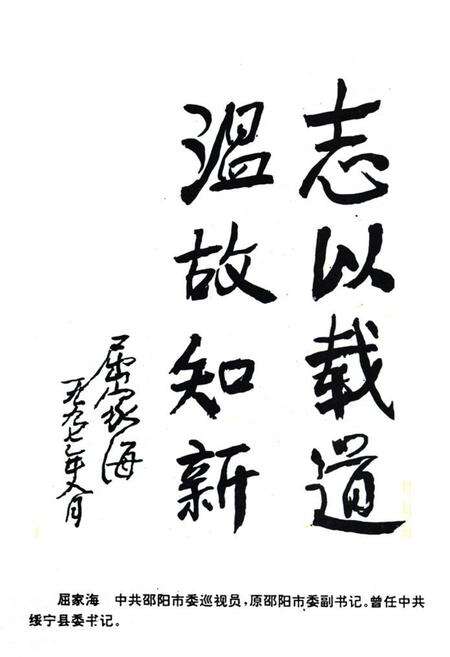 志以载道
温故知新
屈家海
一九九七年八月
屈家海 中共邵阳市委巡视员,原邵阳市委副书记。曾任中共
绥宁县委书记。